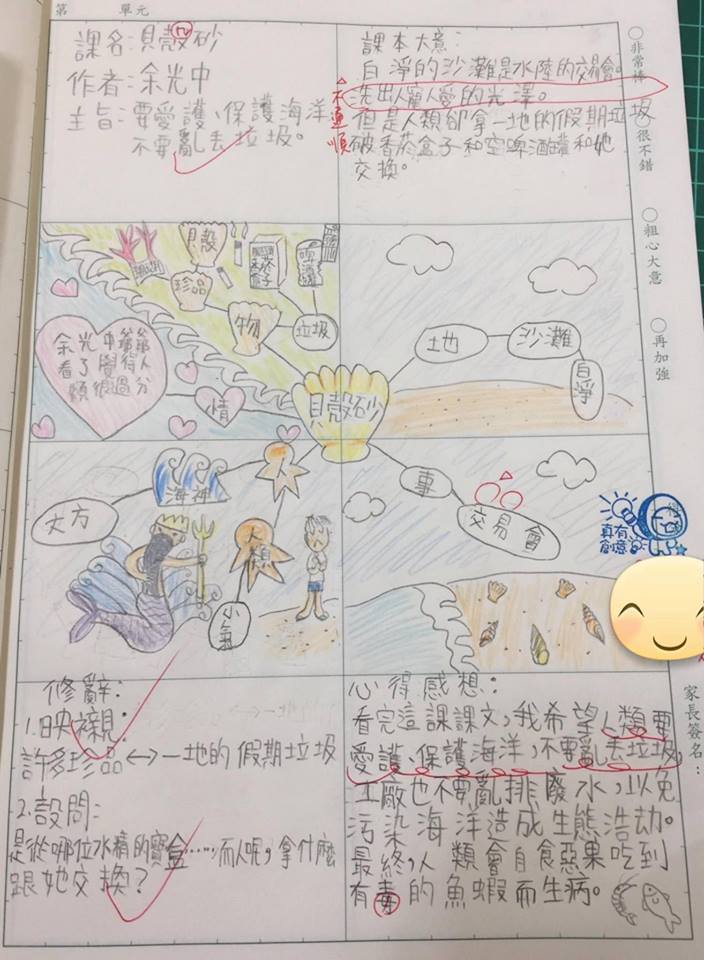 第 單元
課名:貝殼砂
作者:余光中
主旨:要愛護、保護海洋
不要亂丟垃圾。
課本大意:
白淨的沙灘是水陸的交易會。
洗出人寵人愛的光澤。
不通順
但是人類卻拿一地的假期垃圾
破香菸盒子和空啤酒罐和她
交換。
○非常棒
○很不錯
○粗心大意
○再加強
貝殼
珊瑚
珍品
物
垃圾
香菸盒子
啤酒罐
余光中爺爺
看了覺得人
類很過分
情
貝殼砂
土地
沙灘
白淨
大方
海神
人
人類
小氣
事
交易會
真有
創意
修辭:
1.映襯:
許多珍品←→一地的假期垃圾
2.設問:
是從哪位水精的寶盒……而人呢,拿什麼
跟她交換?
心得感想:
看完這課課文,我希望人類要
愛護、保護海洋,不要亂丟垃圾,
工廠也不要亂排廢水,以免
污染海洋造成生態浩劫。
最終,人類會自食惡果吃到
有毒的魚蝦而生病。
家長簽名: